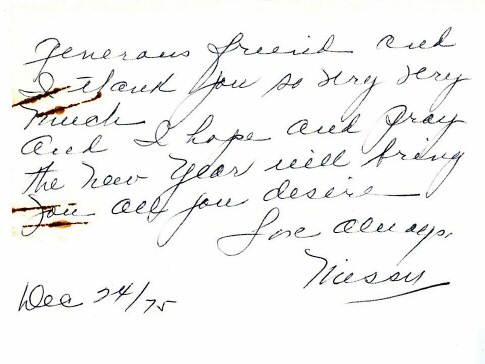 generous friend and
I thank you so very very
much
and I hope and pray
the new year will bring
you all you desire
Love always,
Dec 24/75